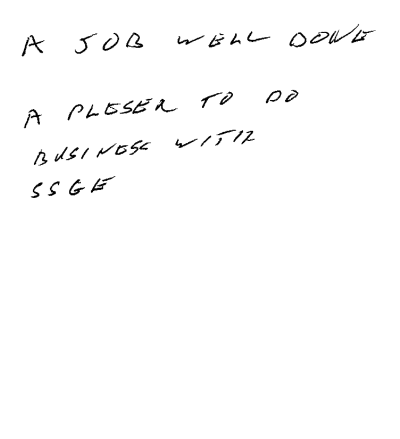 A JOB WELL DONE
A PLESER TO DO
BUSINESS WITH
SSGE